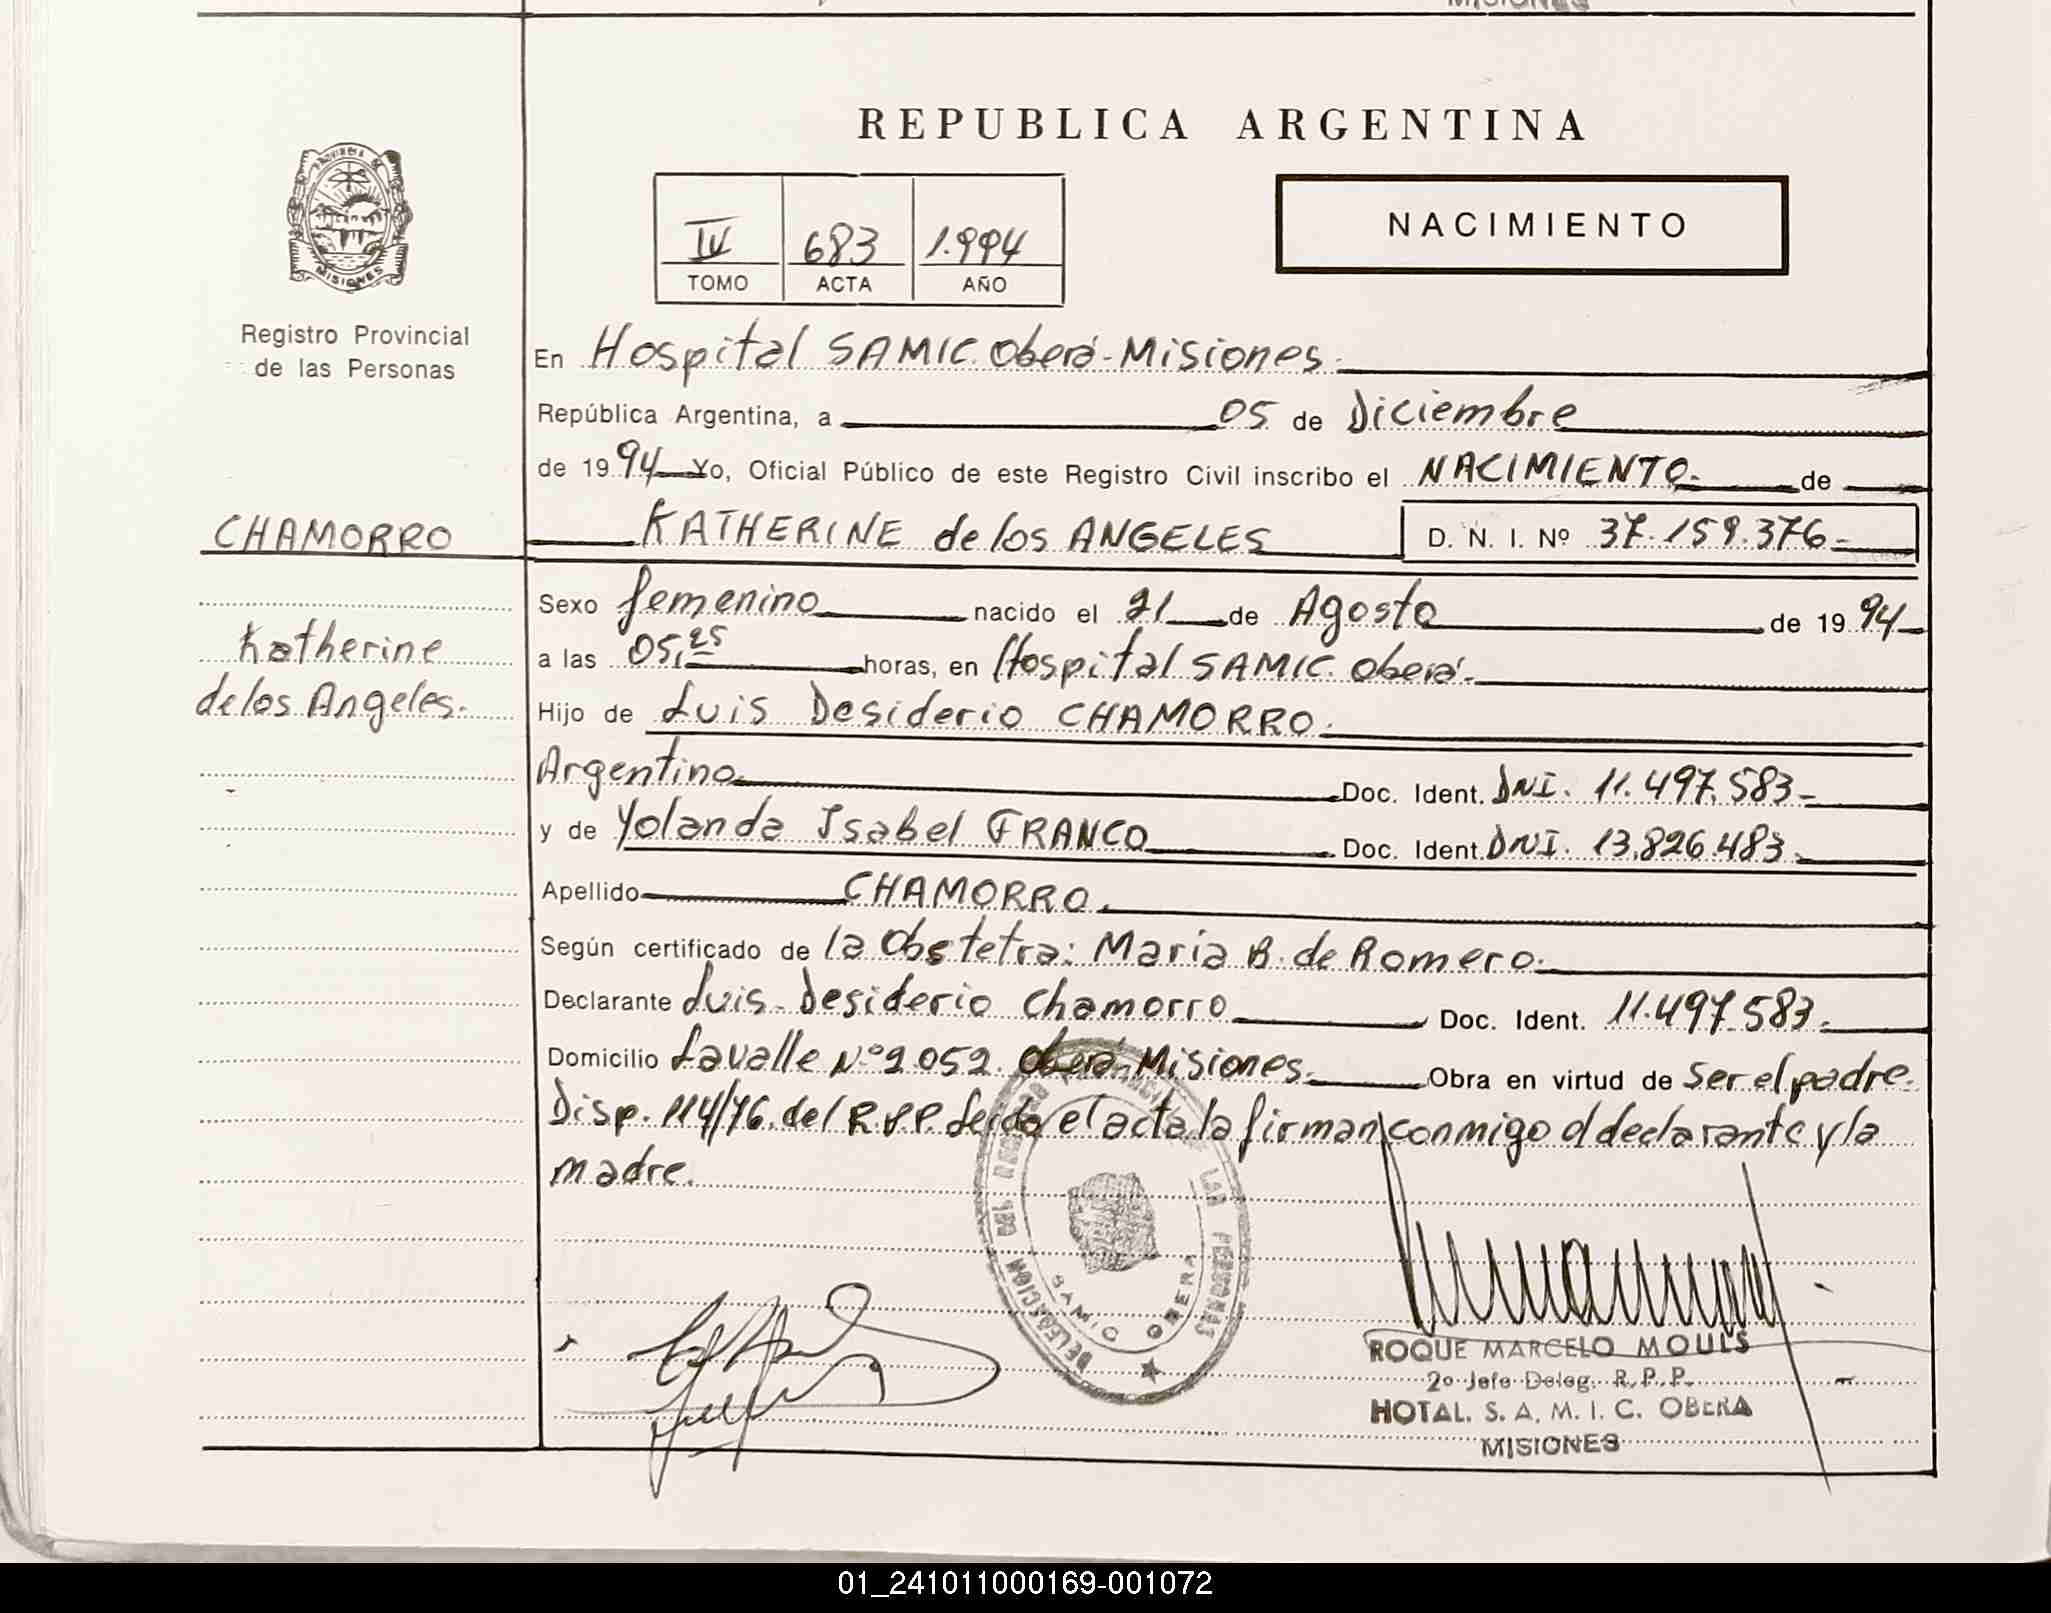 MISIONES
REPUBLICA ARGENTINA
NACIMIENTO
IV 683 1.994
TOMO ACTA AÑO
MISIONES
Registro Provincial
de las Personas
En Hospital SAMIC. Oberá-Misiones.
República Argentina, a 05 de Diciembre
de 19 94 Yo, Oficial Público de este Registro Civil inscribo el NACIMIENTO. de
CHAMORRO
KATHERINE de los ANGELES D. N. I. Nº 37.159.376-
Sexo femenino nacido el 21 de Agosto de 19 94
Katherine
de los Angeles.
a las 05,25 horas, en Hospital SAMIC. Oberá.
Hijo de Luis Desiderio CHAMORRO.
Argentino Doc. Ident. DNI. 11.497.583-
y de Yolanda Isabel FRANCO Doc. Ident. DNI. 13.826.483.
Apellido CHAMORRO.
Según certificado de la Obstetra: Maria B. de Romero.
Declarante Luis Desiderio Chamorro Doc. Ident. 11.497.583.
Domicilio Lavalle Nº 2052. Oberá-Misiones. Obra en virtud de ser el padre.
Disp. 114/76. del R.P.P. Leida el acta, la firman conmigo el declarante y la
madre.
DELEGACION DEL REGISTRO PROVINCIAL DE LAS PERSONAS
SAMIC OBERA
ROQUE MARCELO MOULS
2º Jefe Deleg. R.P.P.
HOTAL. S. A. M. I. C. OBERA
MISIONES
01_241011000169-001072